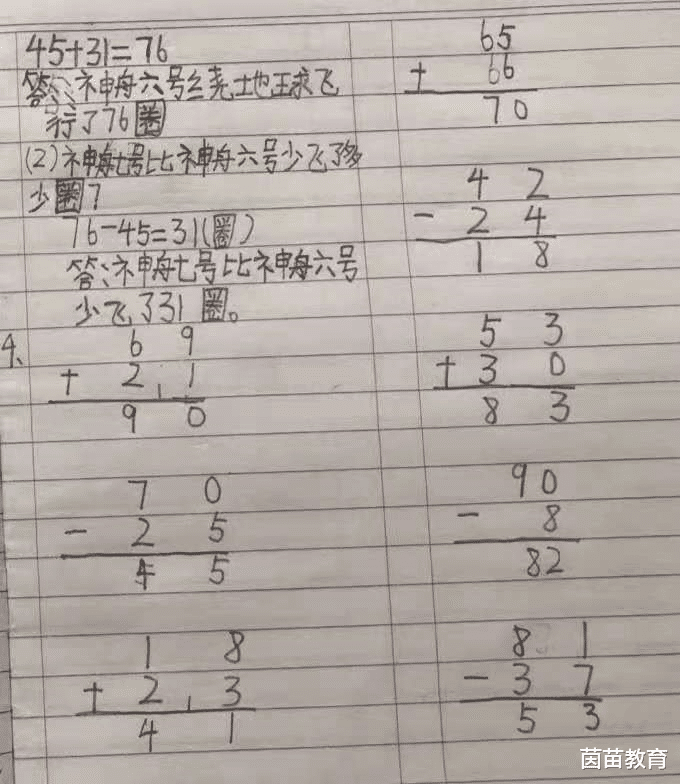 45+31=76
答:神舟六号绕地球飞
行了76圈
(2)神舟七号比神舟六号少飞了多
少圈?
76-45=31(圈)
答:神舟七号比神舟六号
少飞了31圈。
4、
6 9
+ 2 1
9 0
7 0
- 2 5
4 5
1 8
+ 2 3
4 1
65
+ 66
70
4 2
- 2 4
1 8
5 3
+ 3 0
8 3
90
- 8
82
8 1
- 3 7
5 3
茵苗教育